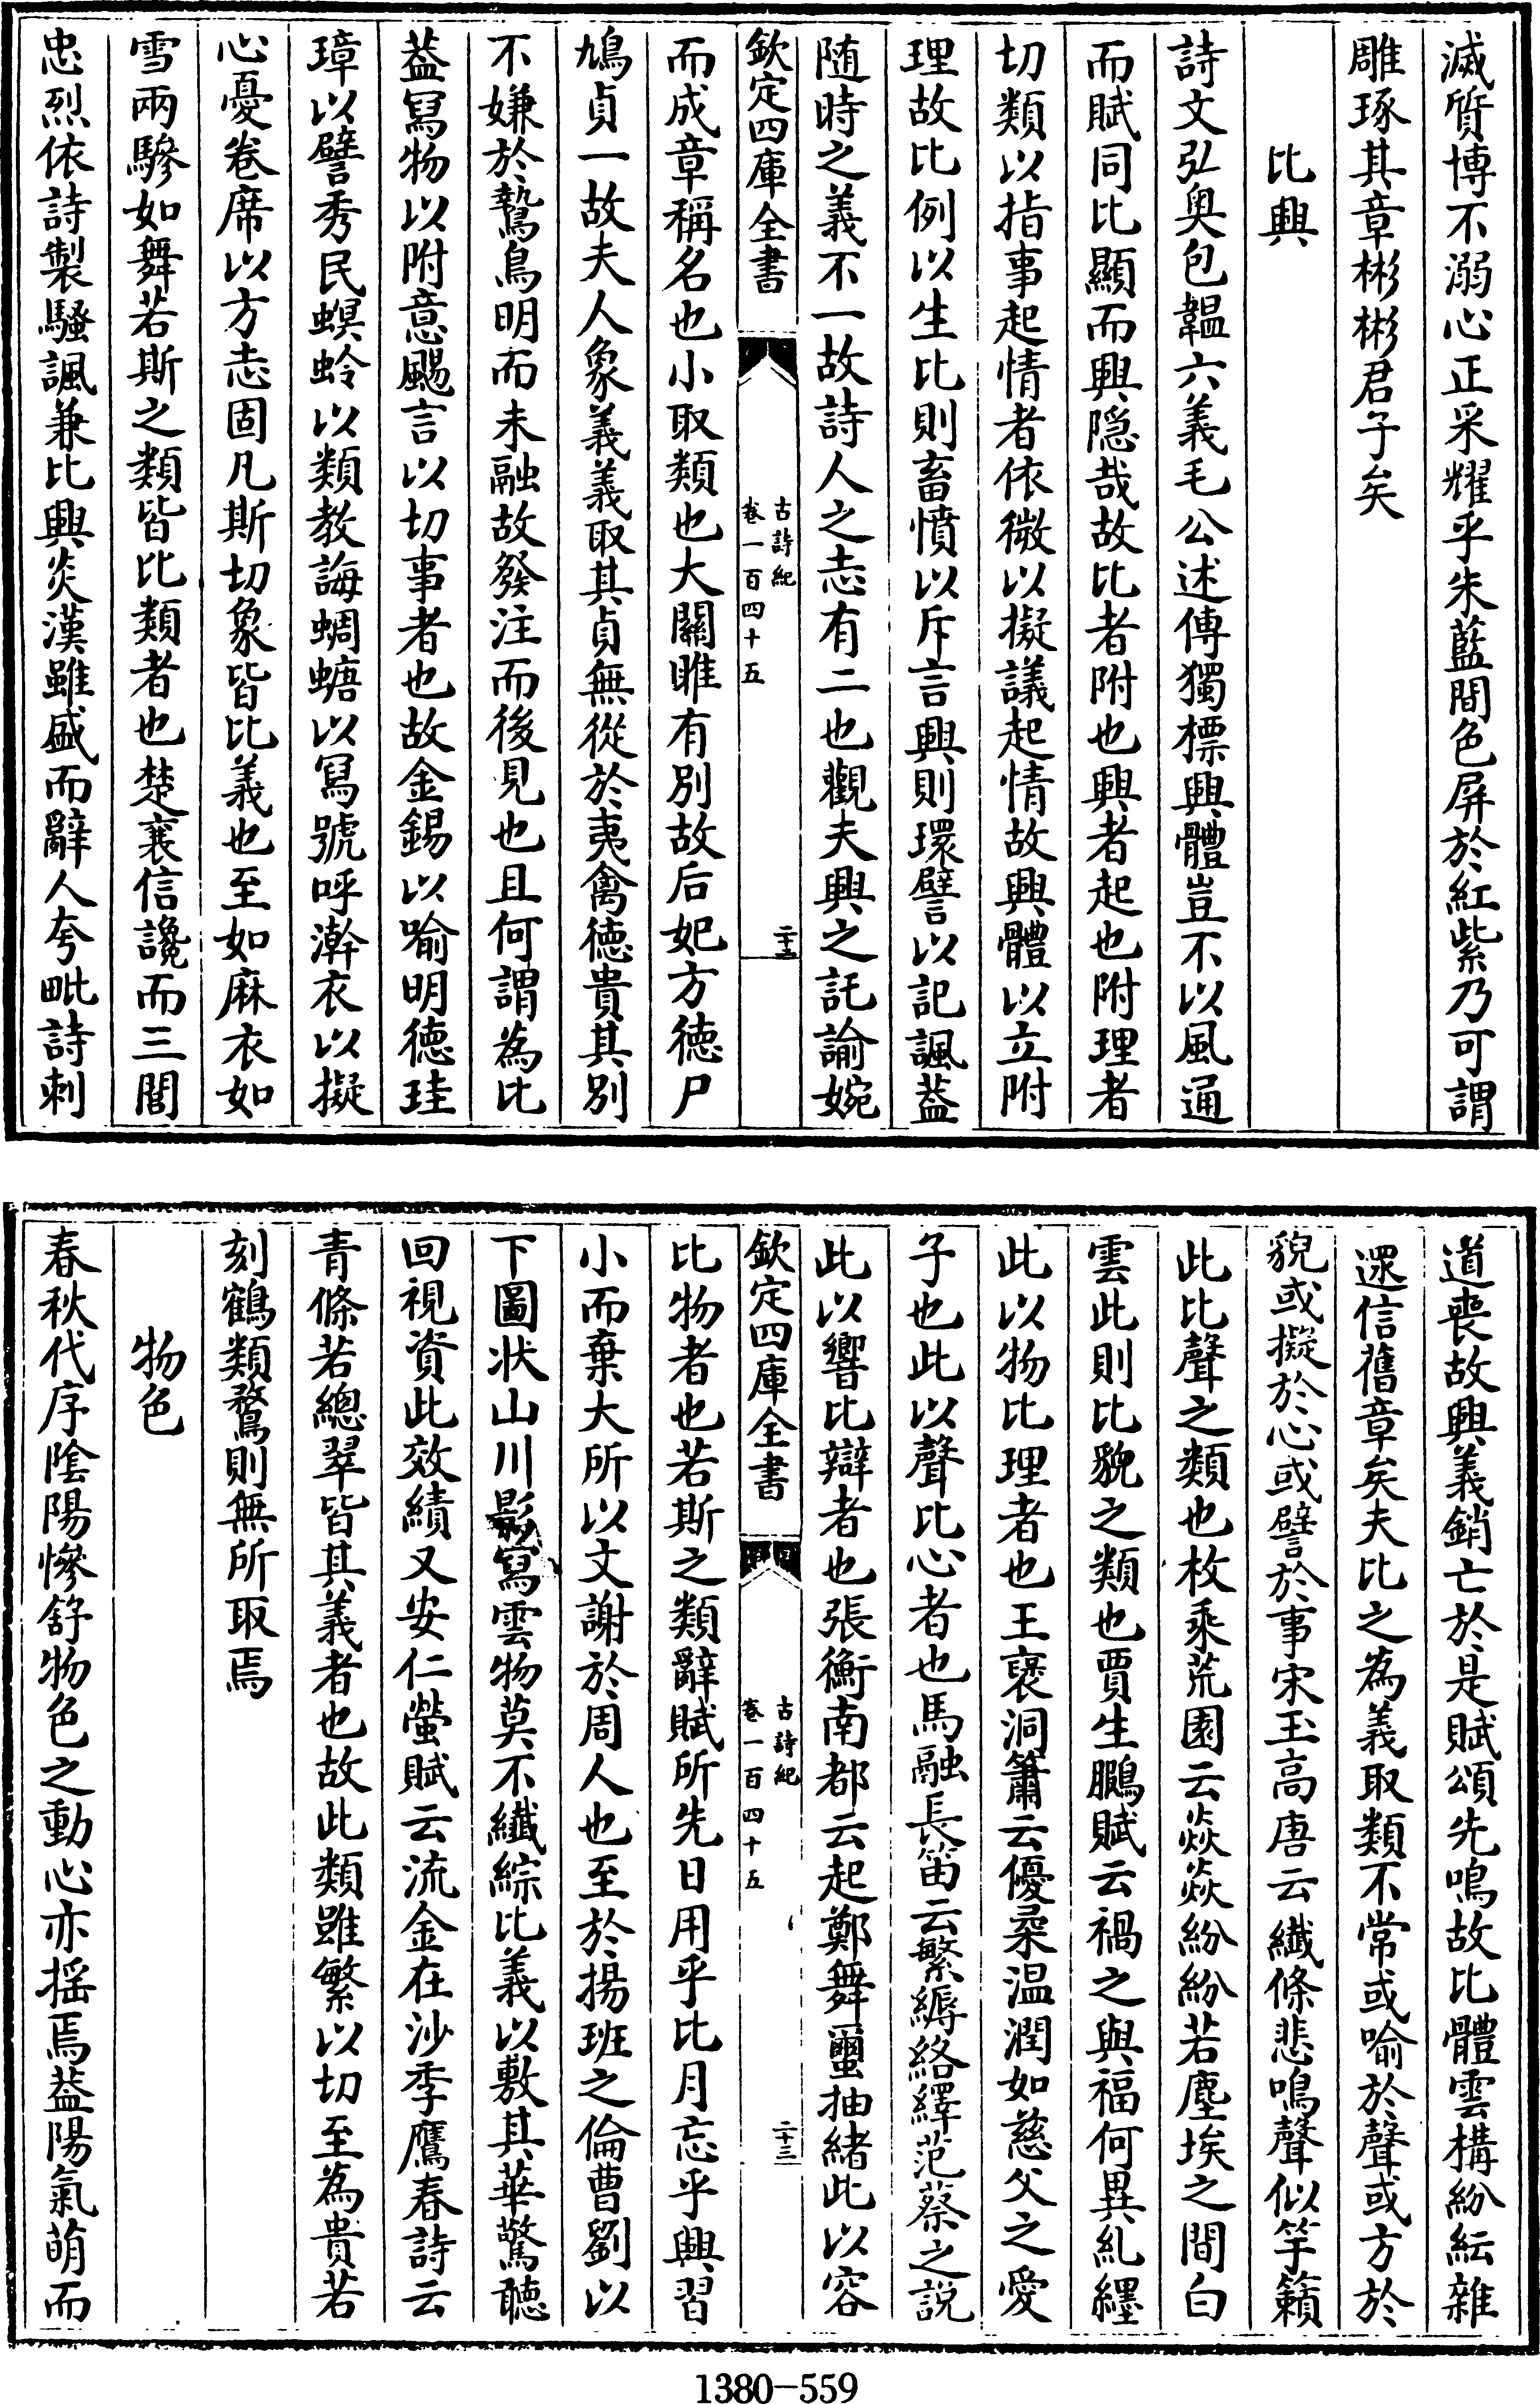 滅質博不溺心正采耀乎朱藍間色屏於紅紫乃可謂
雕琢其章彬彬君子矣
比興
詩文弘奥包韞六義毛公述傳獨標興體豈不以風通
而賦同比顯而興隐哉故比者附也興者起也附理者
切類以指事起情者依微以擬議起情故興體以立附
理故比例以生比則畜憤以斥言興則環譬以記諷葢
随時之義不一故詩人之志有二也觀夫興之託諭婉
欽定四庫全書
古詩紀
卷一百四十五
二十三
而成章稱名也小取類也大關雎有別故后妃方徳尸
鳩貞一故夫人象義義取其貞無從於夷禽徳貴其別
不嫌於鷙鳥明而未融故發注而後見也且何謂為比
葢寫物以附意颺言以切事者也故金錫以喻明徳珪
璋以譬秀民螟蛉以類教誨蜩螗以寫號呼澣衣以擬
心憂卷席以方志固凡斯切象皆比義也至如麻衣如
雪兩驂如舞若斯之類皆比類者也楚襄信讒而三閭
忠烈依詩製騷諷兼比興炎漢雖盛而辭人夸毗詩刺
道喪故興義銷亡於是賦頌先鳴故比體雲構紛紜雜
遝信舊章矣夫比之為義取類不常或喻於聲或方於
貌或擬於心或譬於事宋玉高唐云纎條悲鳴聲似竽籟
此比聲之類也枚乘莵園云焱焱紛紛若塵埃之間白
雲此則比貌之類也賈生鵩賦云禍之與福何異糺纆
此以物比理者也王襃洞簫云優柔温潤如慈父之愛
子也此以聲比心者也馬融長笛云繁縟絡繹范蔡之説
此以響比辯者也張衡南都云起鄭舞䖝抽緒此以容
欽定四庫全書
古詩紀
卷一百四十五
二十三
比物者也若斯之類辭賦所先日用乎比月忘乎興習
小而棄大所以文謝於周人也至於揚班之倫曹劉以
下圖状山川影寫雲物莫不纎綜比義以敷其華驚聽
回視資此效績又安仁螢賦云流金在沙季鷹春詩云
青條若總翠皆其義者也故此類雖繁以切至為貴若
刻鶴類鶩則無所取焉
物色
春秋代序隂陽慘舒物色之動心亦揺焉葢陽氣萌而
1380-559